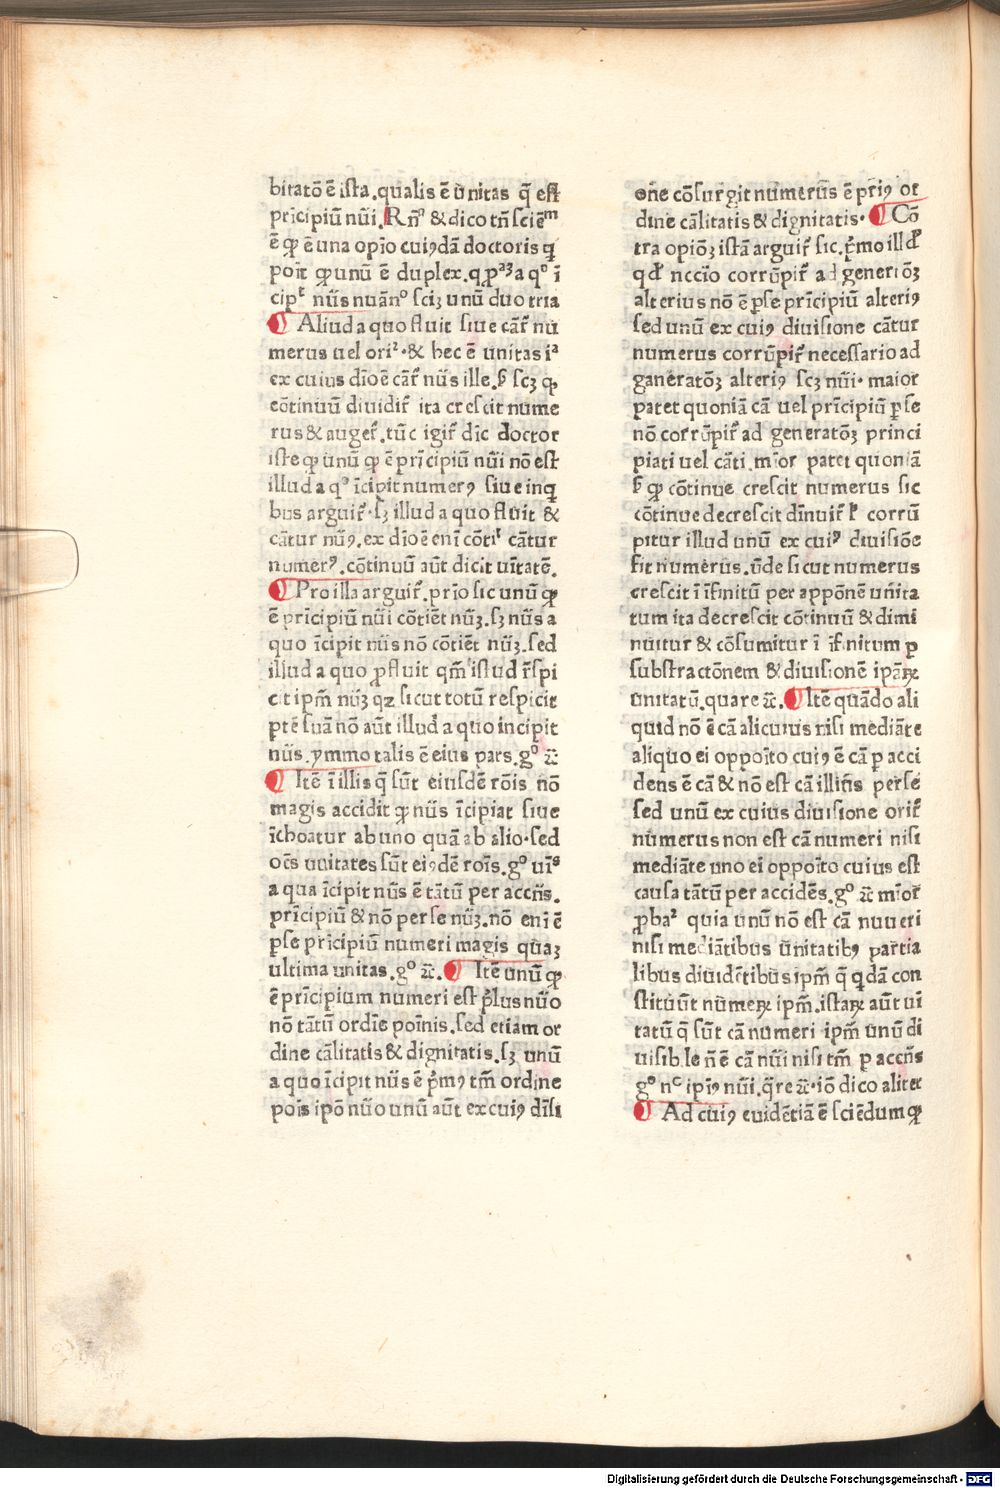 bitatō ē ista.qualis ē ūnitas q̄ est
prīcipiū nūi.Rn̄º & dico tn̄ sciēᵐ
ē ꝙ ē una opīo cuiꝯdā doctoris q
poīt ꝙ unū ē duplex. a qº ī
cipᵗ nūs nuānº sciꝫ unū duo tria
¶ Aliud a quo fluit siue cār̄ nu
merus uel oriʳ.& hec ē unitas iᵃ
ex cuius dīoē cār̄ nūs ille. scꝫ ꝙ
cōtinuū diuidir̄ ita crescit nume
rus & auger̄.tūc igir̄ dīc doctor
iste ꝙ unū ꝙ ē prīcipiū nūi nō est
illud a qº īcipit numerꝯ siue inq
bus arguir̄.sꝫ illud a quo fluit &
cātur nūꝯ.ex dīoē enī cōtiⁱ cātur
numerꝯ.cōtinuū aūt dicit uītatē.
¶ Pro illa arguir̄.prīo sic unū ꝙ
ē prīcipiū nūi cōtiēt nūꝫ.sꝫ nūs a
quo īcipit nūs nō cōtiēt nūꝫ.sed
illud a quo ꝓfluit qm̄ istud r̄spi
cit ipm̄ nūꝫ qꝛ sicut totū respicit
ptē suā nō aūt illud a quo incipit
nūs.ymmo talis ē eius pars.gº ⁊c̄
¶ Itē ī illis q̄ sūt eiusdē rōis nō
magis accidit ꝙ nūs īcipiat siue
īchoatur ab uno quā ab alio.sed
oēs uuitates sūt eiꝯdē roīs.gº uīˢ
a qua īcipit nūs ē tātū per accn̄s.
prīcipiū & nō per se nūꝫ.nō enī ē
ꝑse prīcipiū numeri magis quaꝫ
ultima unitas.gº ⁊c̄. ¶ Itē unū ꝙ
ē prīcipium numeri est p̄lus nūo
nō tātū ordīe poīnis.sed etiam or
dine cālitatis & dignitatis.sꝫ unū
a quo īcipit nūs ē p̄mꝯ tm̄ ordine
poīs ipō nūo unū aūt ex cuiꝯ dīsi
one cōsurgit numerus ē prīꝯ or
dine cālitatis & dignitatis. ¶ Cō
tra opiōꝫ istā arguir̄ sic.p̄mo illđ
qđ nccīo corrūpir̄ ad generiōꝫ
alterius nō ē ꝑse prīcipiū alteriꝯ
sed unū ex cuiꝯ diuisione cātur
numerus corrūpir̄ necessario ad
ganēratōꝫ alteriꝯ scꝫ nūi. maior
patet quoniā cā uel prīcipiū ꝑse
nō corrūpir̄ ad generatōꝫ princi
piati uel cāti.mīor patet quoniā
ꝙ cōtinue crescit numerus sic
cōtinue decrescit dīnuir̄ corrū
pitur illud unū ex cuiꝯ diuisiōe
fit numerus.ūde sicut numerus
crescit ī īfinitū per appōnē unīta
tum ita decrescit cōtinuū & dimi
nuitur & cōsumitur ī īfinitum ꝑ
substractōnem & diuisionē ipāꝝ
unitatū.quare ⁊c̄. ¶ Itē quādo ali
quid nō ē cā alicuius nisi mediāte
aliquo ei oppoīto cuiꝯ ē cā ꝑ acci
dens ē cā & nō est cā illiūs per sé
sed unū ex cuius diuisione orir̄
numerus non est cā numeri nisi
mediāte uno ei oppoīto cuius est
causa tātū per accidēs.gº ⁊c̄ mīor̄
ꝓbaʳ quia unū nō est cā nuueri
nisi mediātibus ūnitatibꝯ partia
libus diuidētibus ipm̄ q̄ qdā con
stituūt nūmeꝝ ipm̄.istaꝝ aūt uī
tatū q̄ sūt cā numeri ipm̄ unū di
uisible n̄ ē cā nūi nisi tm̄ ꝑ accn̄s
gº nᶜ ipīꝯ nūi.q̄re ⁊c̄.iō dico aliter
¶ Ad cuiꝯ euidētiā ē sciēdum ꝙ
Digitalisierung gefördert durch die Deutsche Forschungsgemeinschaft - DFG